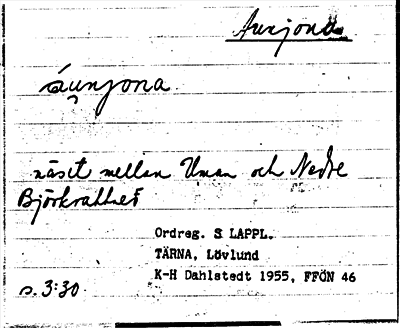 náset mellan Uman och Nedre
Björkvattnet
Ordreg. S LAPPL.
TÄRNA, Lövlund
K-H Dahlstedt 1955, FFÖN 46
s. 3:30